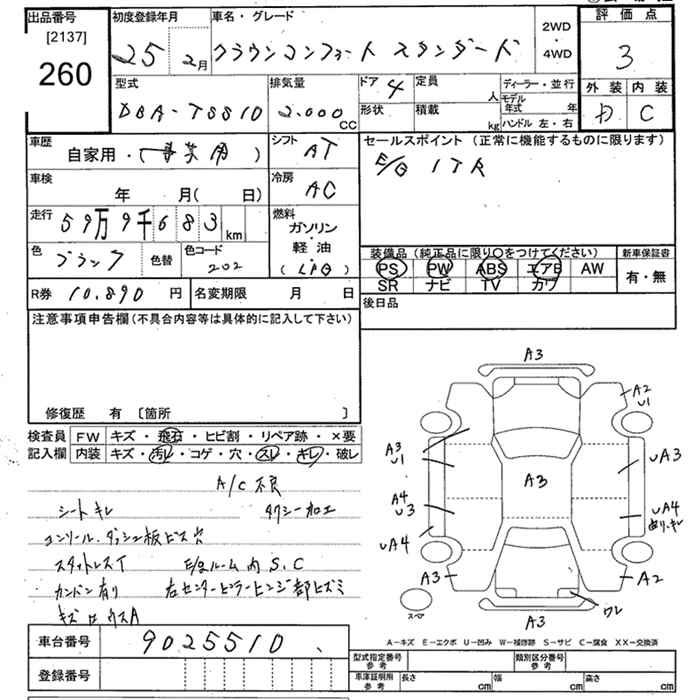 出品番号 初度登録年月 車名・グレード 評価点
[2137]
260
25 2月 クラウンコンフォート スタンダード 2WD・4WD 3
型式 排気量 ドア 4 定員 人 ディーラー・並行 外装 内装
DBA-TSS10 2,000 CC 形状 積載 kg モデル年式 年 ハンドル 左・右 C
車歴 自家用・(事業用) シフト AT セールスポイント (正常に機能するものに限ります)
E/G ITR
車検 年 月( 日) 冷房 AC
走行 59万9千683 km 燃料 ガソリン 軽・油 (LPG)
色 ブラック 色替 色コード 202
装備品 (純正品に限り○をつけてください) 新車保証書
PS PW ABS エアB AW 有・無
SR ナビ TV カワ
R券 10,890 円 名変期限 月 日 後日品
注意事項申告欄 (不具合内容等は具体的に記入して下さい)
修復歴 有 [箇所 ]
検査員 FW キズ・飛石・ヒビ割・リペア跡・×要
記入欄 内装 キズ・汚レ・コゲ・穴・スレ・キレ・破レ
A/C 不良
シートキレ タクシー加工
コンソール、ダッシュ板ビス穴
スタットレスT E/gルーム内 S.C
カンバン有り 右センターピラーヒンジ部ヒズミ
A3
A2
U1
A3
U1
A3
UA3
A4
U3
UA4
UA4
A3
A2
ワレ
スペア
A3
A-キズ E-エクボ U-凹み W-補修跡 S-サビ C-腐食 XX-交換済
車台番号 9025510
登録番号
型式指定番号 参考 類別区分番号 参考
車庫証明用 参考 長さ cm 幅 cm 高さ cm